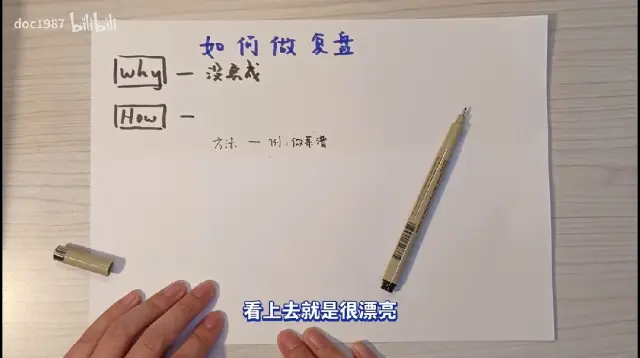 doc1987 bilibili
如何做复盘
Why — 没完成
How —
方法 — 例:做菜谱
看上去就是很漂亮